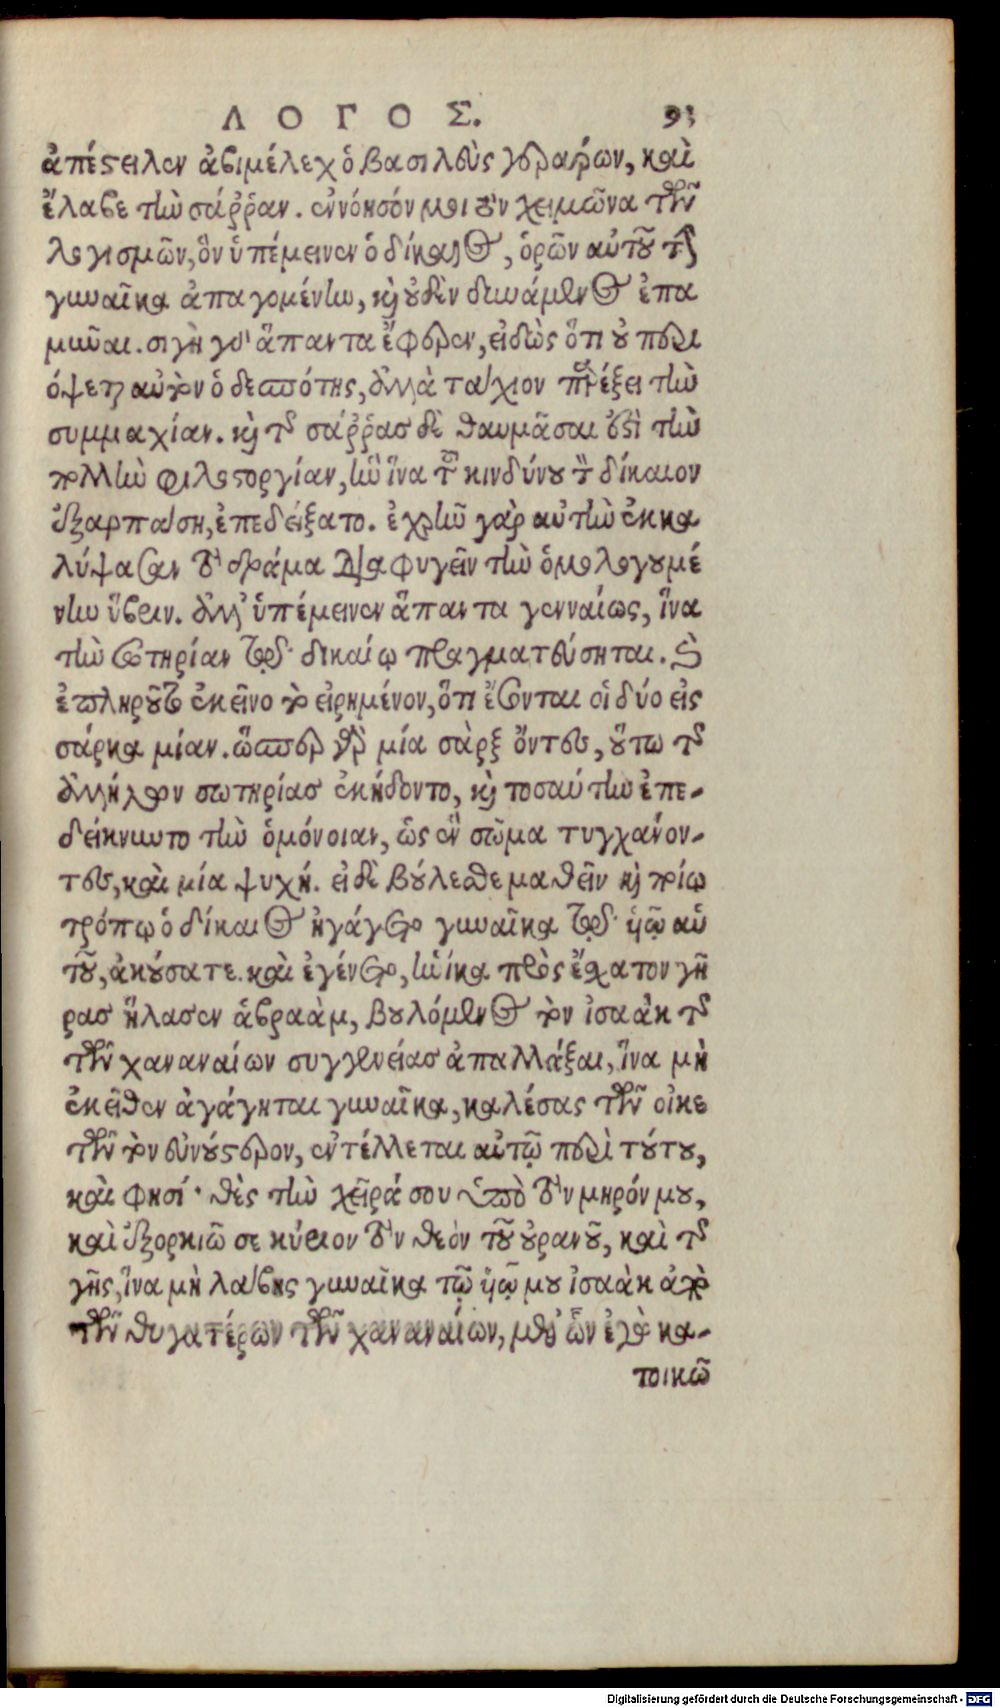 ΛΟΓΟΣ. 93
ἀπέστειλεν ἀβιμέλεχ ὁ βασιλεὺς γεράρων, καὶ
ἔλαβε τὴν σάῤῥαν. ἐννόησόν μοι τὸν χειμῶνα τῶν
λογισμῶν, ὃν ὑπέμεινεν ὁ δίκαιος, ὁρῶν αὐτοῦ τὴν
γυναῖκα ἀπαγομένην, καὶ οὐδὲν δυνάμενος ἐπα
μῦναι. σιγῇ γὰρ ἅπαντα ἔφερεν, εἰδὼς ὅτι οὐ περι
όψεται αὐτὸν ὁ δεσπότης, ἀλλὰ ταχίον παρέξει τὴν
συμμαχίαν. καὶ τῆς σάῤῥας δὲ θαυμᾶσαι ἔστι τὴν
πολλὴν φιλοστοργίαν, ἣν ἵνα τοῦ κινδύνου τὸν δίκαιον
ἐξαρπάσῃ, ἐπεδείξατο. ἐχρῆν γὰρ αὐτὴν ἐκκα
λύψασαν τὸ δράμα διαφυγεῖν τὴν ὁμολογουμέ
νην ὕβριν. ἀλλ' ὑπέμεινεν ἅπαντα γενναίως, ἵνα
τὴν σωτηρίαν τῷ δικαίῳ πραγματεύσηται. καὶ
ἐπληροῦτο ἐκεῖνο τὸ εἰρημένον, ὅτι ἔσονται οἱ δύο εἰς
σάρκα μίαν. ὥσπερ γὰρ μία σὰρξ ὄντες, οὕτω τῆς
ἀλλήλων σωτηρίας ἐκήδοντο, καὶ τοσαύτην ἐπε-
δείκνυντο τὴν ὁμόνοιαν, ὡς ἓν σῶμα τυγχάνον-
τες, καὶ μία ψυχή. εἰ δὲ βούλεσθε μαθεῖν καὶ ποίῳ
τρόπῳ ὁ δίκαιος ἠγάγετο γυναῖκα τῷ ὑῷ αὑ
τοῦ, ἀκούσατε. καὶ ἐγένετο, ἡνίκα πρὸς ἔσχατον γῆ
ρας ἤλασεν ἁβραὰμ, βουλόμενος τὸν ἰσαὰκ τῆς
τῶν χαναναίων συγγενείας ἀπαλλάξαι, ἵνα μὴ
ἐκεῖθεν ἀγάγηται γυναῖκα, καλέσας τῶν οἰκε
τῶν τὸν εὐνούστερον, ἐντέλλεται αὐτῷ περὶ τούτου,
καὶ φησί· θὲς τὴν χεῖρά σου ὑπὸ τὸν μηρόν μου,
καὶ ἐξορκιῶ σε κύριον τὸν θεὸν τοῦ οὐρανοῦ, καὶ τῆς
γῆς, ἵνα μὴ λάβῃς γυναῖκα τῷ ὑῷ μου ἰσαὰκ ἀπὸ
τῶν θυγατέρων τῶν χαναναίων, μεθ' ὧν ἐγὼ κα-
τοικῶ
Digitalisierung gefördert durch die Deutsche Forschungsgemeinschaft - DFG